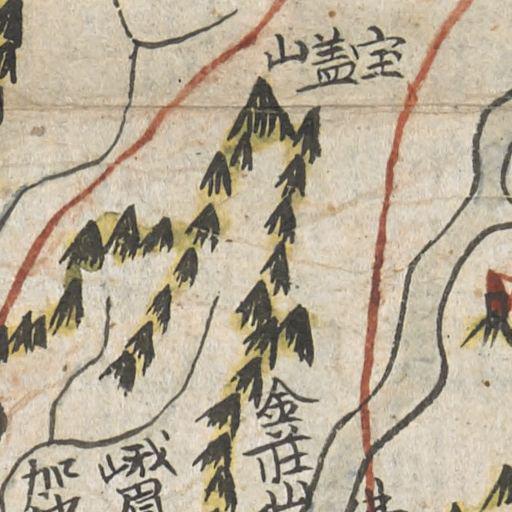 宝盖山
金莊山
峨眉
加